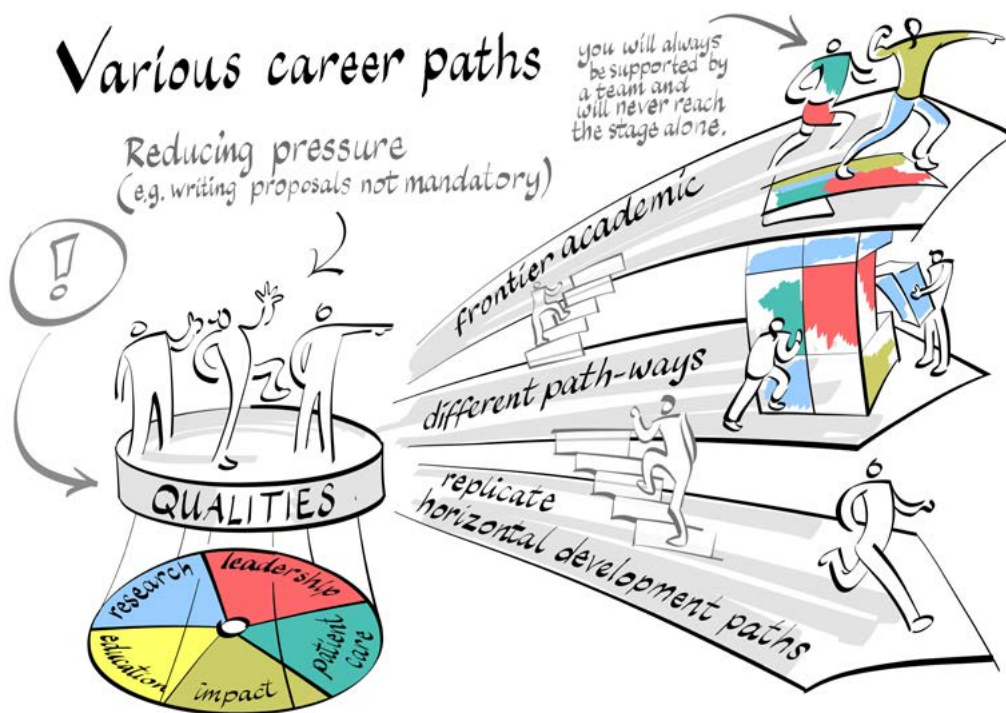 Various career paths
you will always
be supported by
a team and
will never reach
the stage alone.
Reducing pressure
(e.g. writing proposals not mandatory)
!
frontier academic
different path-ways
replicate
horizontal development paths
QUALITIES
research
leadership
education
impact
patient
care